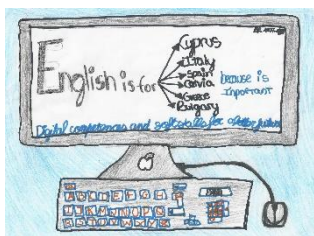 English is for
Cyprus
Italy
Spain
Bulgary
because is
important
Digital competencies and soft skills for a better future